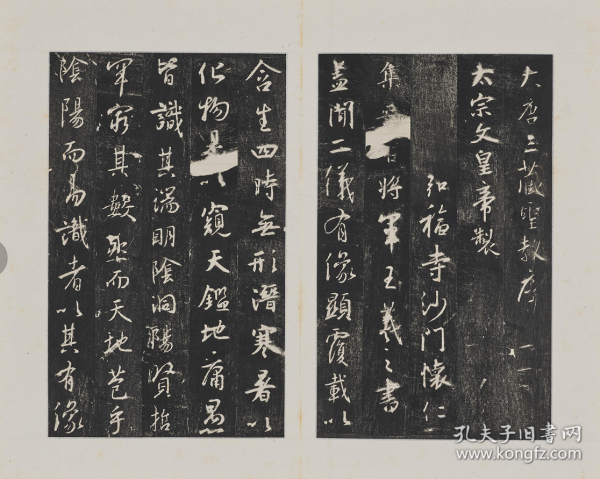 大唐三藏聖教序
太宗文皇帝製
弘福寺沙門懷仁
集 將軍王羲之書
蓋聞二儀有像顯覆載以
含生四時無形潛寒暑以
化物是以窺天鑑地庸愚
皆識其端明陰洞陽賢哲
罕窮其數然而天地苞乎
陰陽而易識者以其有像
孔夫子旧书网
www.kongfz.com